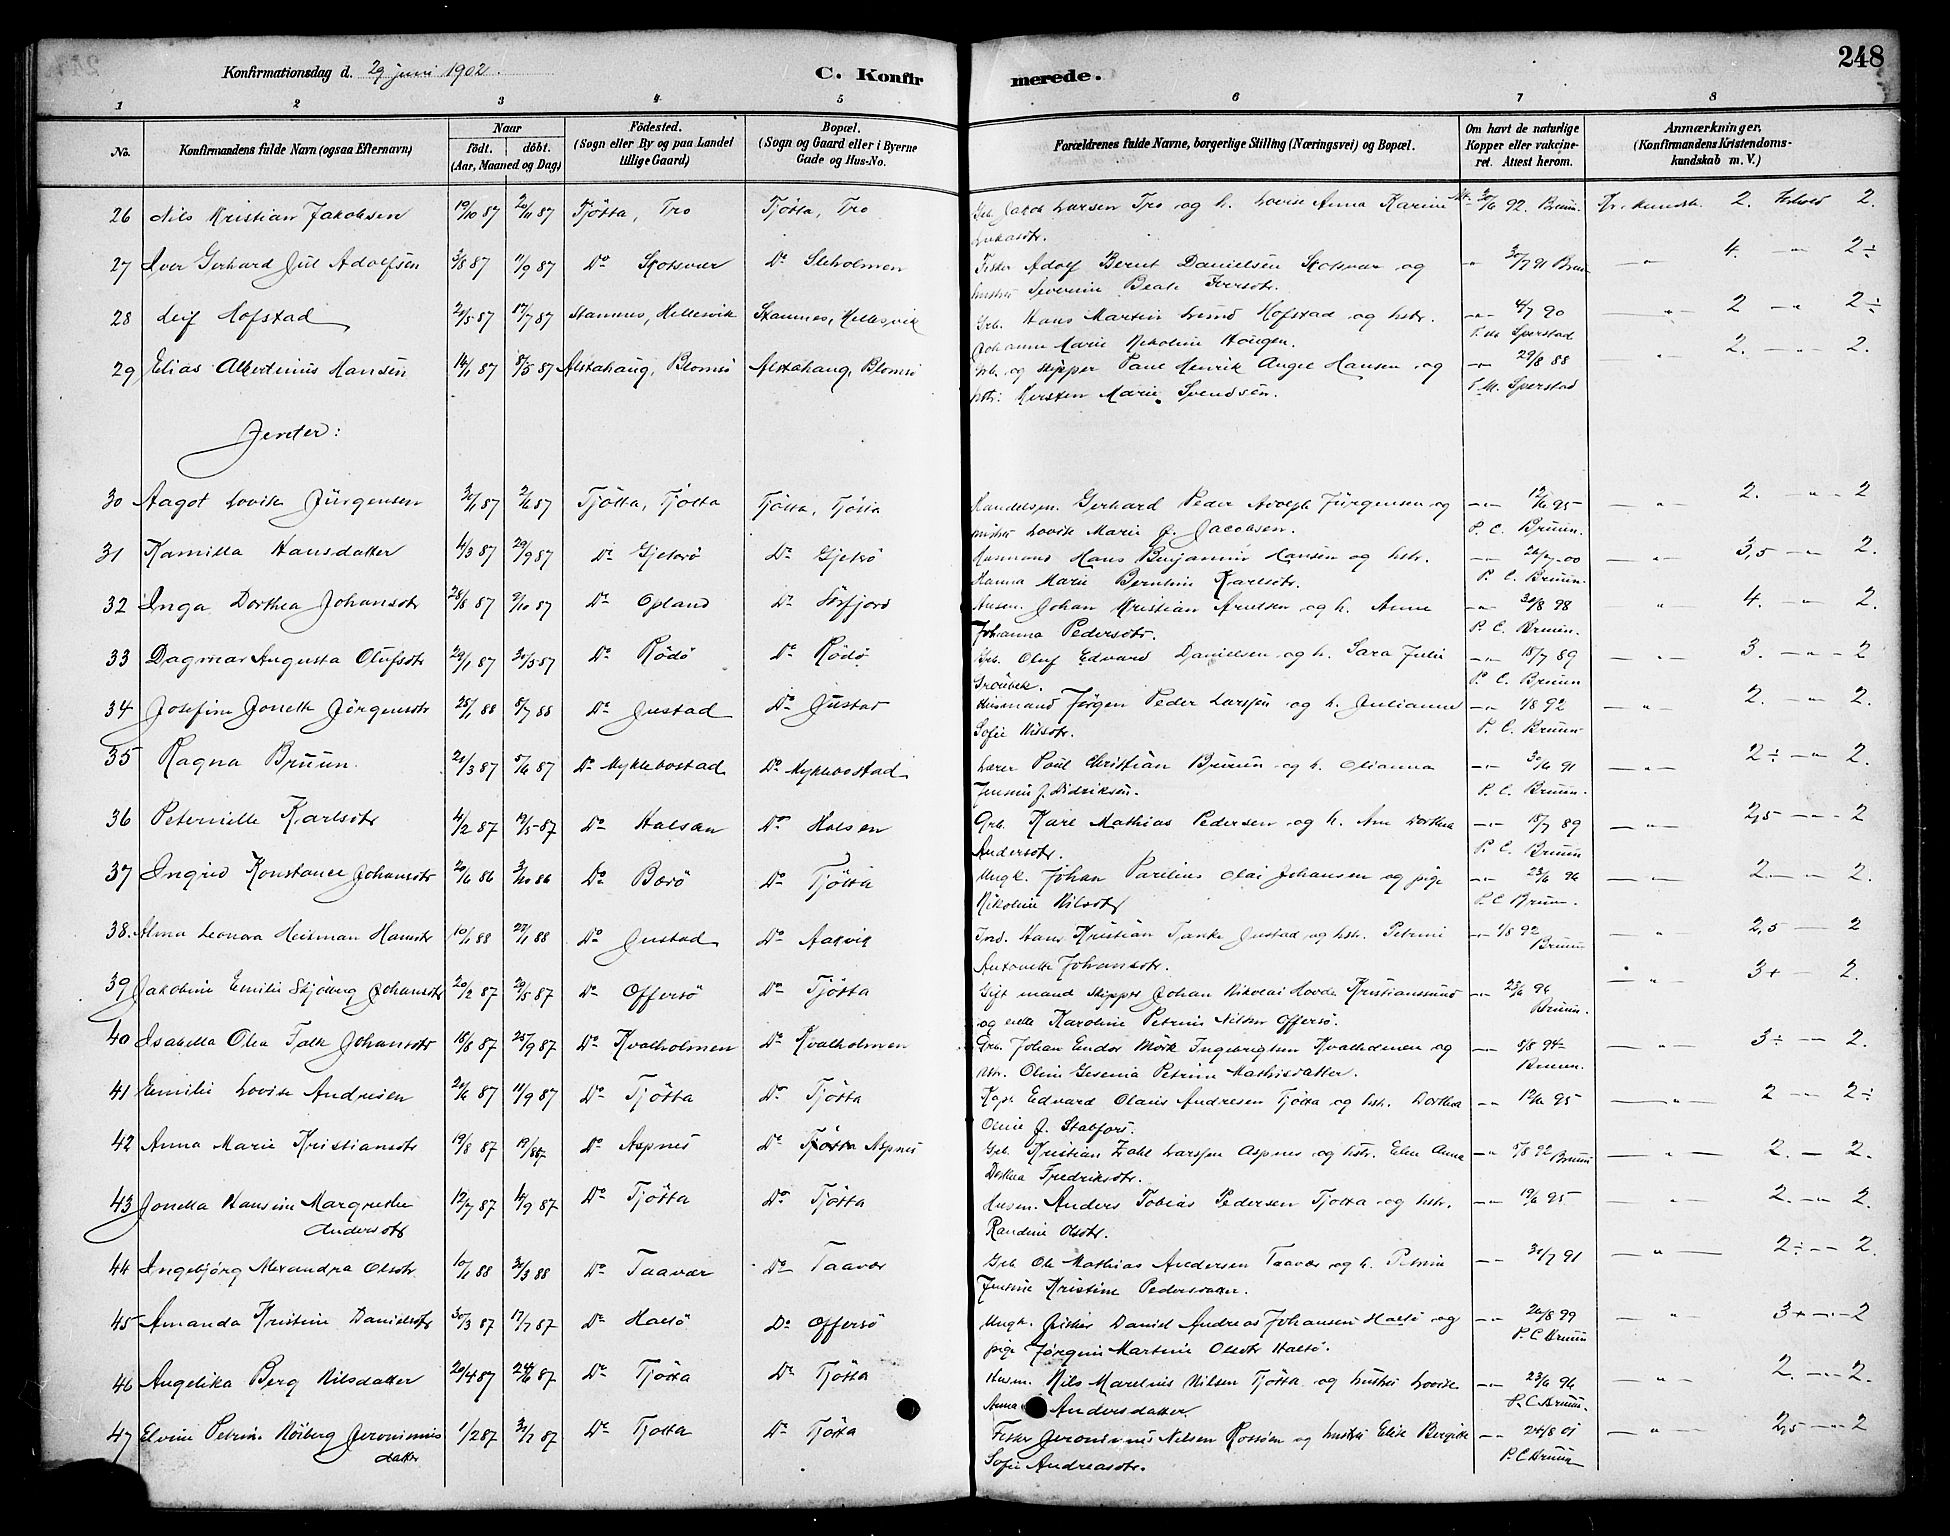 248
Konfirmationsdag d. 29 juni 1902.
C. Konfirmerede.
1 2 3 4 5 6 7 8
No. Konfirmandens fulde Navn (ogsaa Efternavn) Naar født. døbt. (Aar, Maaned og Dag) Fødested. (Sogn eller By og paa Landet tillige Gaard) Bopæl. (Sogn og Gaard eller i Byerne Gade og Hus-No. Forældrenes fulde Navne, borgerlige Stilling (Næringsvei) og Bopæl. Om havt de naturlige Kopper eller vakcineret. Attest herom. Anmærkninger. (Konfirmandens Kristendomskundskab m. V.)
26 Nils Kristian Jakobsen 19/10 87 20/11 87 Tjøtta, Tro Tjøtta, Tro Grb. Jakob Larsen Tro og h. Lovise Anna Karine 92. Bruun. Kr. kundsk. 2. Forhold 2.
Lukasdtr.
27 Iver Gerhard Juel Adolfsen 3/8 87 1/9 87 Do Skotsvær Do Sleholmen Fisker Adolf Bernt Danielsen Skotsvær og 91 Bruun — " — 4. — " — 2÷
hustru Severine Beate Iversdtr.
28 Leif Hofstad 2/5 87 17/7 87 Stamnes, Hellesvik Stamnes, Hellesvik Grb. Hans Martin Lund Hofstad og hstr. 4/7 90 — " — 2 — " — 2÷
Johanne Marie Nikoline Haugen. P. M. Sperstad
29 Elias Albertinius Hansen 14/1 87 8/5 87 Alstahaug, Blomsø Alstahaug, Blomsø Grb. og skipper Paul Henrik Angel Hansen og 29/8 88 — " — 2. — " — 2.
hstr. Kirsten Marie Svendsen. P. M. Sperstad
Jenter:
30 Aagot Lovise Jürgensen 30/1 87 2/6 87 Tjøtta, Tjøtta Tjøtta, Tjøtta Handelsm. Gerhard Peder Adolph Jürgensen og 12/6 95 — " — 2. — " — 2
hustru Lovise Marie f. Jacobsen. P. C. Bruun.
31 Kamilla Hansdatter 4/3 87 29/9 87 Do Gjeterø Do Gjeterø Husmand Hans Benjamin Hansen og hstr. 00 — " — 3,5 — " — 2.
Hanna Marie Berntine Karlsdtr. P. C. Bruun.
32 Inga Dorthea Johansdtr 28/8 87 9/10 87 Do Opland Do Sørfjord Husm. Johan Kristian Arntsen og h. Anne 30/8 98 — " — 4. — " — 2.
Johanna Pedersdtr. P. C. Bruun.
33 Dagmar Augusta Olufsdtr 29/1 87 30/5 87 Do Rødø Do Rødø Grb. Oluf Edvard Danielsen og h. Sara Julie 18/7 89 — " — 3. — " — 2
Groübek. P. C. Bruun
34 Josefine Jonette Jørgensdtr 25/1 88 8/7 88 Do Justad Do Justad Husmand Jørgen Peder Larssen og h. Julianne 1/8 92 — " — 2. — " — 2.
Sofie Nilsdtr. P. C. Bruun
35 Ragna Bruun 21/3 87 5/6 87 Do Myklebostad Do Myklebostad Lærer Paul Christian Bruun og h. Olianna 30/6 91 — " — 2÷ — " — 2.
Jensine f. Didriksen. P. C. Bruun.
36 Peternelle Karlsdtr 4/2 87 19/5 87 Do Halsan Do Halsen Grb. Karl Mathias Pedersen og h. Ane Dorthea 18/7 89 — " — 2,5 — " — 2
Andersdtr. P. C. Bruun
37 Ingrid Konstance Johansdtr 20/6 86 3/10 86 Do Barø Do Tjøtta Ungk. Johan Parelius Olai Johansen og pige 23/6 96 — " — 2. — " — 2.
Nikoline Nilsdtr P. C. Bruun.
38. Alma Leonora Heitman Hansdtr 10/1 88 Do Justad Do Aakvik Ind. Hans Kristian Tanke Justad og hstr. Petrine 1/8 92 — " — 2,5 — 2
Antonette Johansdtr. Bruun
39 Jakobine Emilie Skjelberg Johansdtr 20/2 87 29/5 87 Do Offersø Do Tjøtta Gift mand skipper Johan Nikolai Hovde Kristianssund 23/6 96 — " — 3+ — 2.
og enke Karoline Petrine Nilsen Offersø. Bruun.
40 Isabella Olea Falk Johansdtr 18/8 87 25/9 87 Do Kvalholmen Do Kvalholmen Grb. Johan Endor Mørk Ingebrigtsen Kvalholmen og 5/8 94 — " — 3÷ — 2.
hstr. Oline Gesenia Petrine Mathisdatter. Bruun.
41 Emilie Lovise Andresen 20/6 87 11/9 87 Do Tjøtta Do Tjøtta Kapt. Edvard Olaus Andresen Tjøtta og hstr. Dorthea 12/6 95 — " — 2 — " — 2÷
Oline f. Stabfors.
42 Anna Marie Kristiansdtr 19/8 87 Do Aspnes Do Aspnes Grb. Kristian Zahl Larssen Aspnes og hstr. Elen Anna 5/8 92 Bruun — " — 2. — 2.
Dorthea Fredriksdtr.
43 Jonella Hansine Margrethe 12/7 87 4/9 87 Do Tjøtta Do Tjøtta Husm. Anders Tobias Pedersen Tjøtta og hstr. 95 — " — 2. — " — 2.
Andersdtr Randine Olsdtr.
44 Ingebjørg Alexandra Olsdtr. 10/1 88 30/3 88 Do Taavær Do Taavær Grb. Ole Mathias Andersen Taavær og h. Petrine 31/7 91 — " — 2÷ — " — 2.
Jensine Kristine Pedersdatter.
45 Amanda Kristine Danielsdtr 30/3 87 17/7 87 Do Halsø Do Offersø Ungk. fisker Daniel Andreas Johansen Halsø og 26/8 99 — " — 3+ — " — 2
pige Jørgine Martine Olsdtr Halsø. P. C. Bruun
46 Angelika Berg Nilsdatter 20/4 87 24/6 87 Do Tjøtta Do Tjøtta Husm. Nils Marelius Nilsen Tjøtta og hustru Lovise 23/6 96 — " — 2. — " — 2.
Anna Andersdatter P. C. Bruun.
47 Elvine Petrine Nøiberg Jeronimus 1/2 87 31/7 87 Do Tjøtta Do Tjøtta Fisker Jeronimus Nilsen Rossøen og hustru Elise Bergitte 24/8 01 — " — 2,5 — " — 2
datter Sofie Andreasdtr. P. C. Bruun